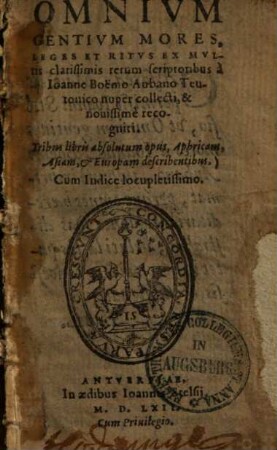 OMNIVM
GENTIVM MORES,
LEGES ET RITVS EX MVL-
tis clarissimis rerum scriptoribus à
Ioanne Boëmo Aubano Teu-
tonico nuper collecti, &
nouissimè reco-
gniti.
Tribus libris absolutum opus, Aphricam,
Asiam, & Europam describentibus.
Cum Indice locupletissimo.
CONCORDIA
CRESCVNT
IS
COLLEGII
IN
AUGSBURG
ANNA
ANTVERPIAE,
In ædibus Ioannis Stelsii
M. D. LXII.
Cum Priuilegio.